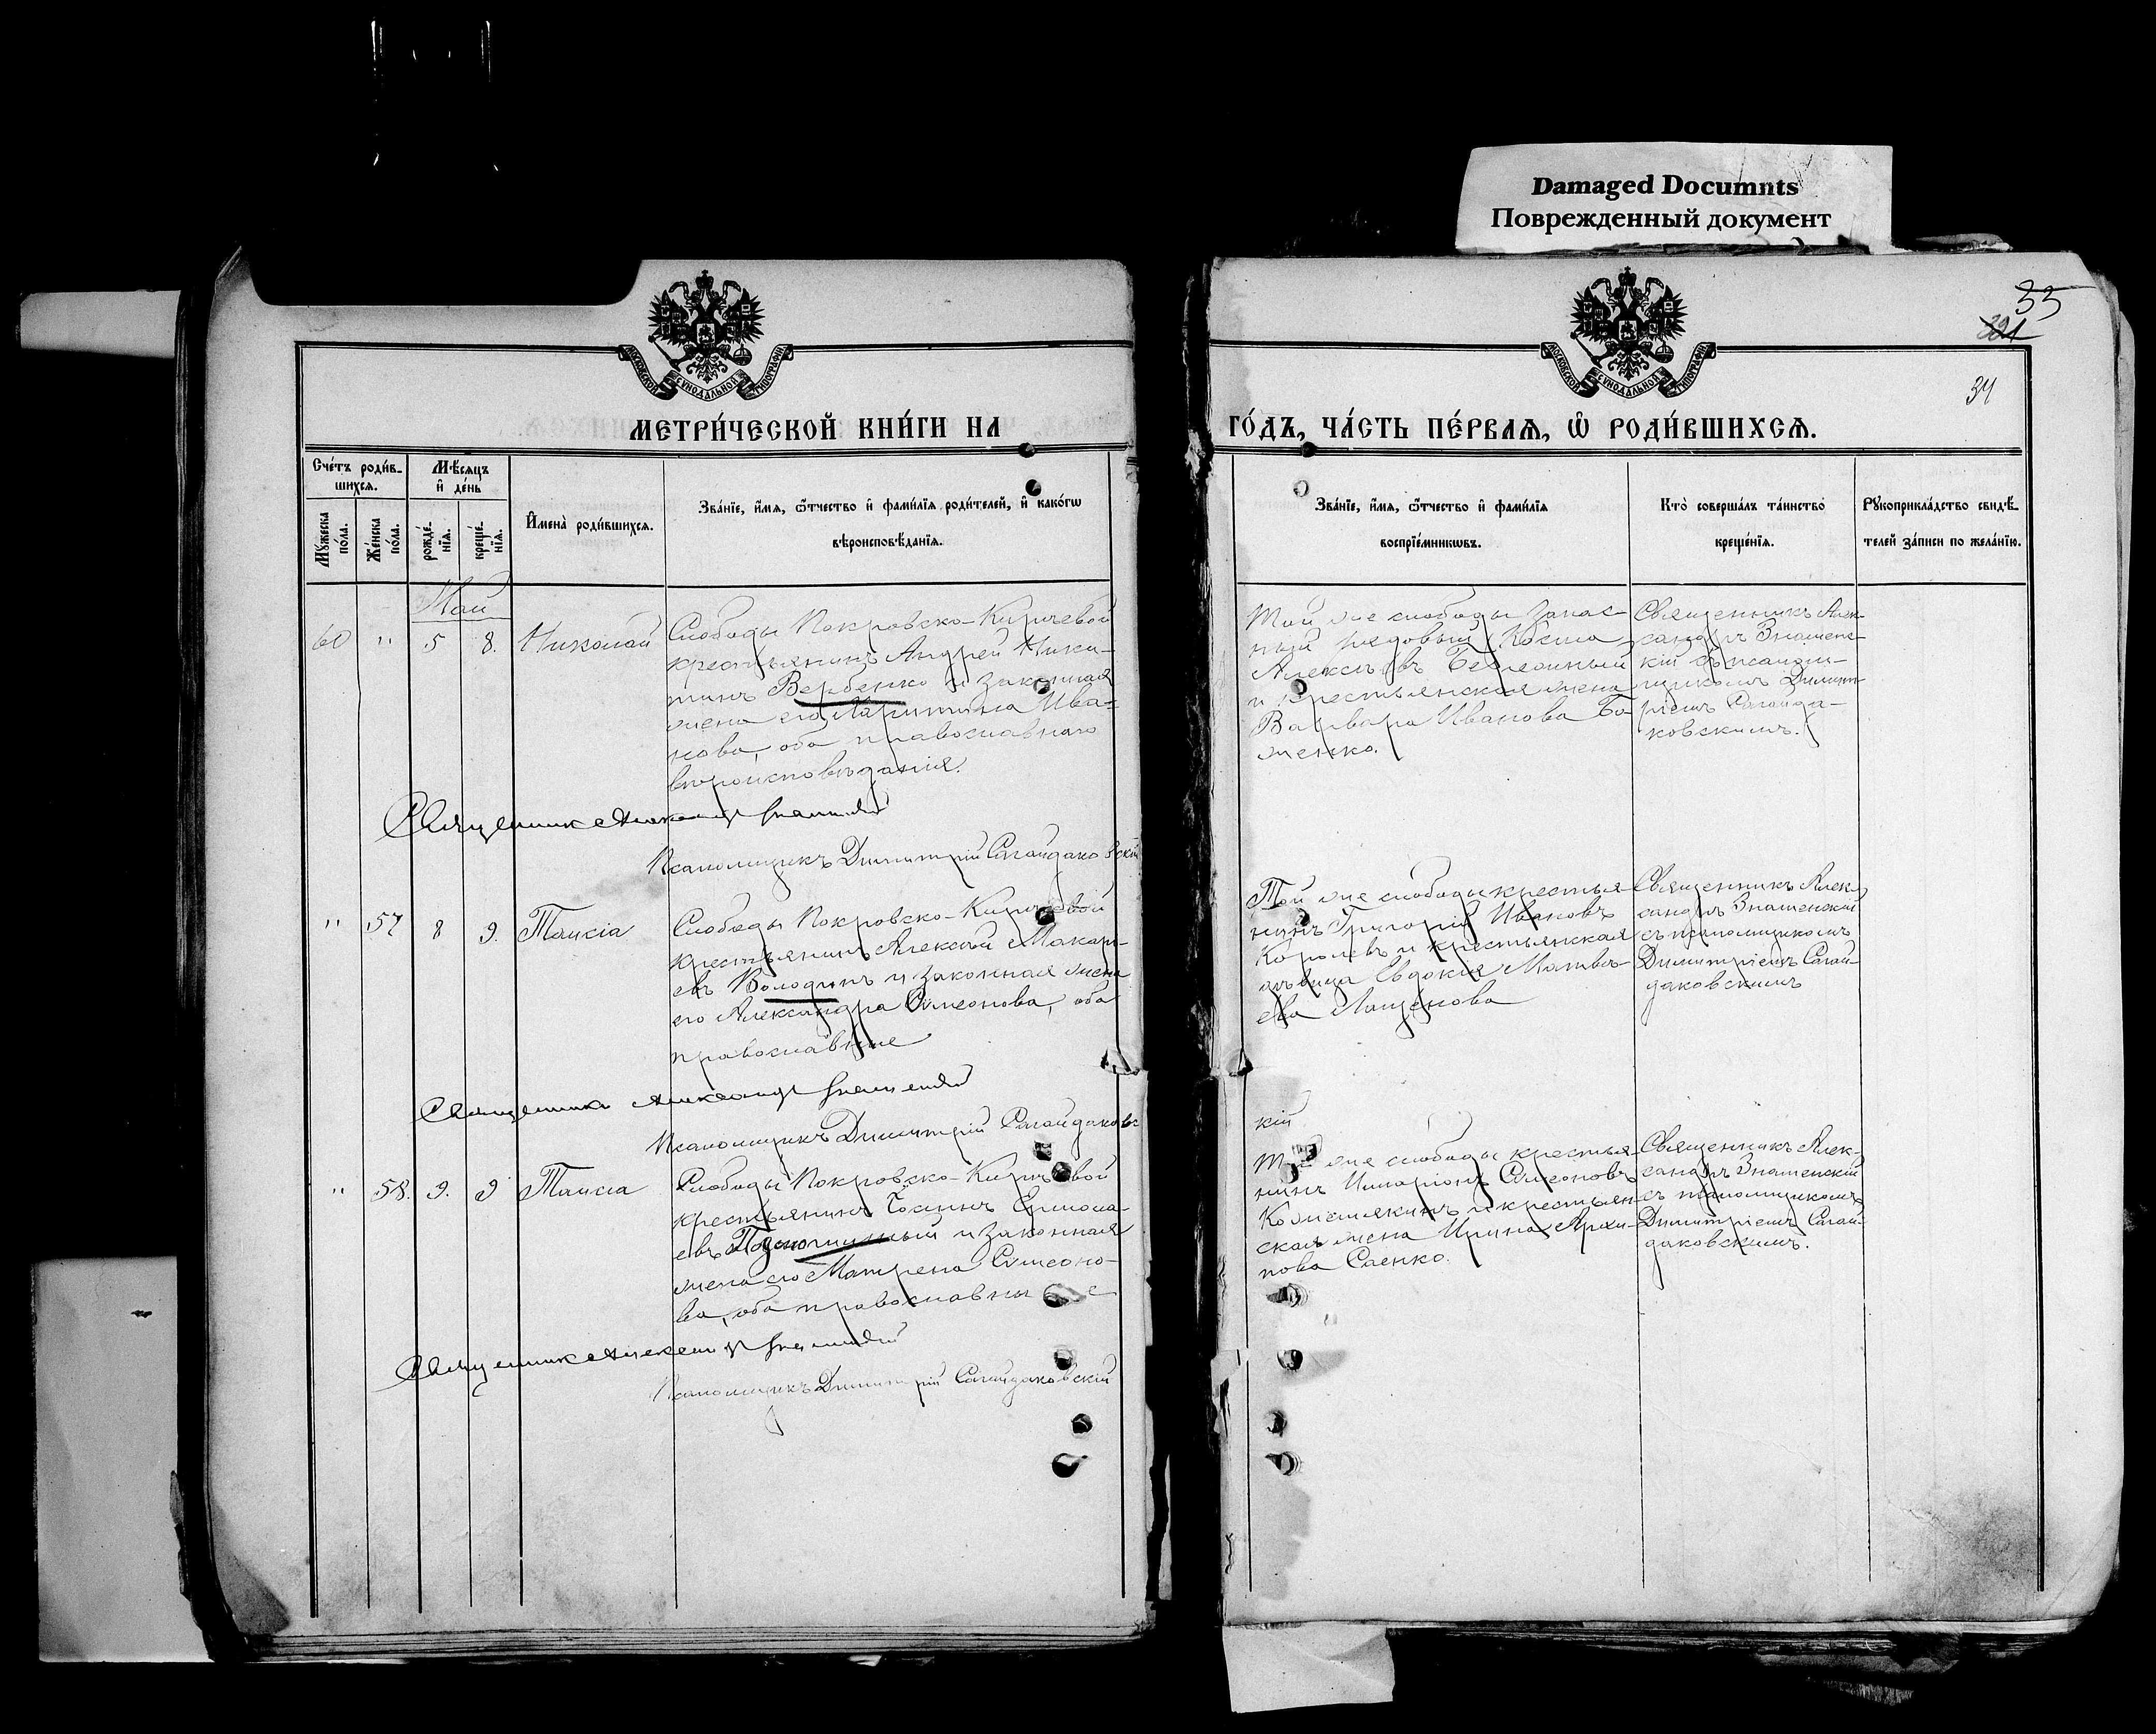 Damaged Documnts
Поврежденный документ
33
34
МОСКОВСКОЙ СѴНОДАЛЬНОЙ ТИПОГРАФІИ
МОСКОВСКОЙ СѴНОДАЛЬНОЙ ТИПОГРАФІИ
МЕТРИ́ЧЕСКОЙ КНИ́ГИ НА
ГО́ДЪ, ЧА́СТЬ ПЕ́РВАѦ, Ѽ РОДИ́ВШИХСѦ.
Сче́тъ роди́в-
шихсѧ.
Мѣ́сѧцъ
и҆ де́нь
Мꙋ́жеска
по́ла.
Же́нска
по́ла.
рожде́-
нїѧ.
креще́-
нїѧ.
И҆мена̀ роди́вшихсѧ.
Зва́нїе, и҆́мѧ, ѻ҆́тчество и҆ фами́лїѧ роди́телей, и҆ како́гѡ
вѣроисповѣ́данїѧ.
Зва́нїе, и҆́мѧ, ѻ҆́тчество и҆ фами́лїѧ
воспрїе́мникѡвъ.
Кто̀ соверша́лъ та́инство
креще́нїѧ.
Рꙋкоприкла́дство свидѣ́-
телей за́писи по жела́нїю.
Май
60 " 5 8. Николай
Слободы Покровско-Киричевой
крестьянинъ Андрей Ники-
тинъ Вербенко и законная
жена его Харитина Ива-
нова, оба православнаго
вѣроисповѣданія.
Той же слободы запас-
ный рядовый Косма
Алексѣевъ
и крестьянская жена
Варвара Иванова Бо-
женко.
Священникъ Алек-
сандръ Знаменс-
кій съ псалом-
щикомъ Димит-
ріемъ Сагайда-
ковскимъ.
Священникъ Александръ Знаменскій
Псаломщикъ Димитрій Сагайдаковскій
" 57 8 9. Таисія
Слободы Покровско-Киричевой
крестьянинъ Алексѣй Макарі-
евъ Володинъ и законная жена
его Александра Симеонова, оба
православные
Той же слободы крестья-
нинъ Григорій Ивановъ
Королевъ и крестьянская
дѣвица Евдокія Матвѣ-
ева Лащенова
Священникъ Алек-
сандръ Знаменскій
съ псаломщикомъ
Димитріемъ Сагай-
даковскимъ
Священникъ Александръ Знаменскій
Псаломщикъ Димитрій Сагайдаковс
кій
" 58. 9. 9 Таисія
Слободы Покровско-Киричевой
крестьянинъ Ермола-
евъ и законная
жена его Матрена Симеоно-
ва, оба православные
Той же слободы крестья-
нинъ Иларіонъ Симеоновъ
Кожемякинъ и крестьян-
ская жена Ирина Архи-
пова Саенко.
Священникъ Алек-
сандръ Знаменскій
съ псаломщикомъ
Димитріемъ Сагай-
даковскимъ.
Священникъ Александръ Знаменскій
Псаломщикъ Димитрій Сагайдаковскій